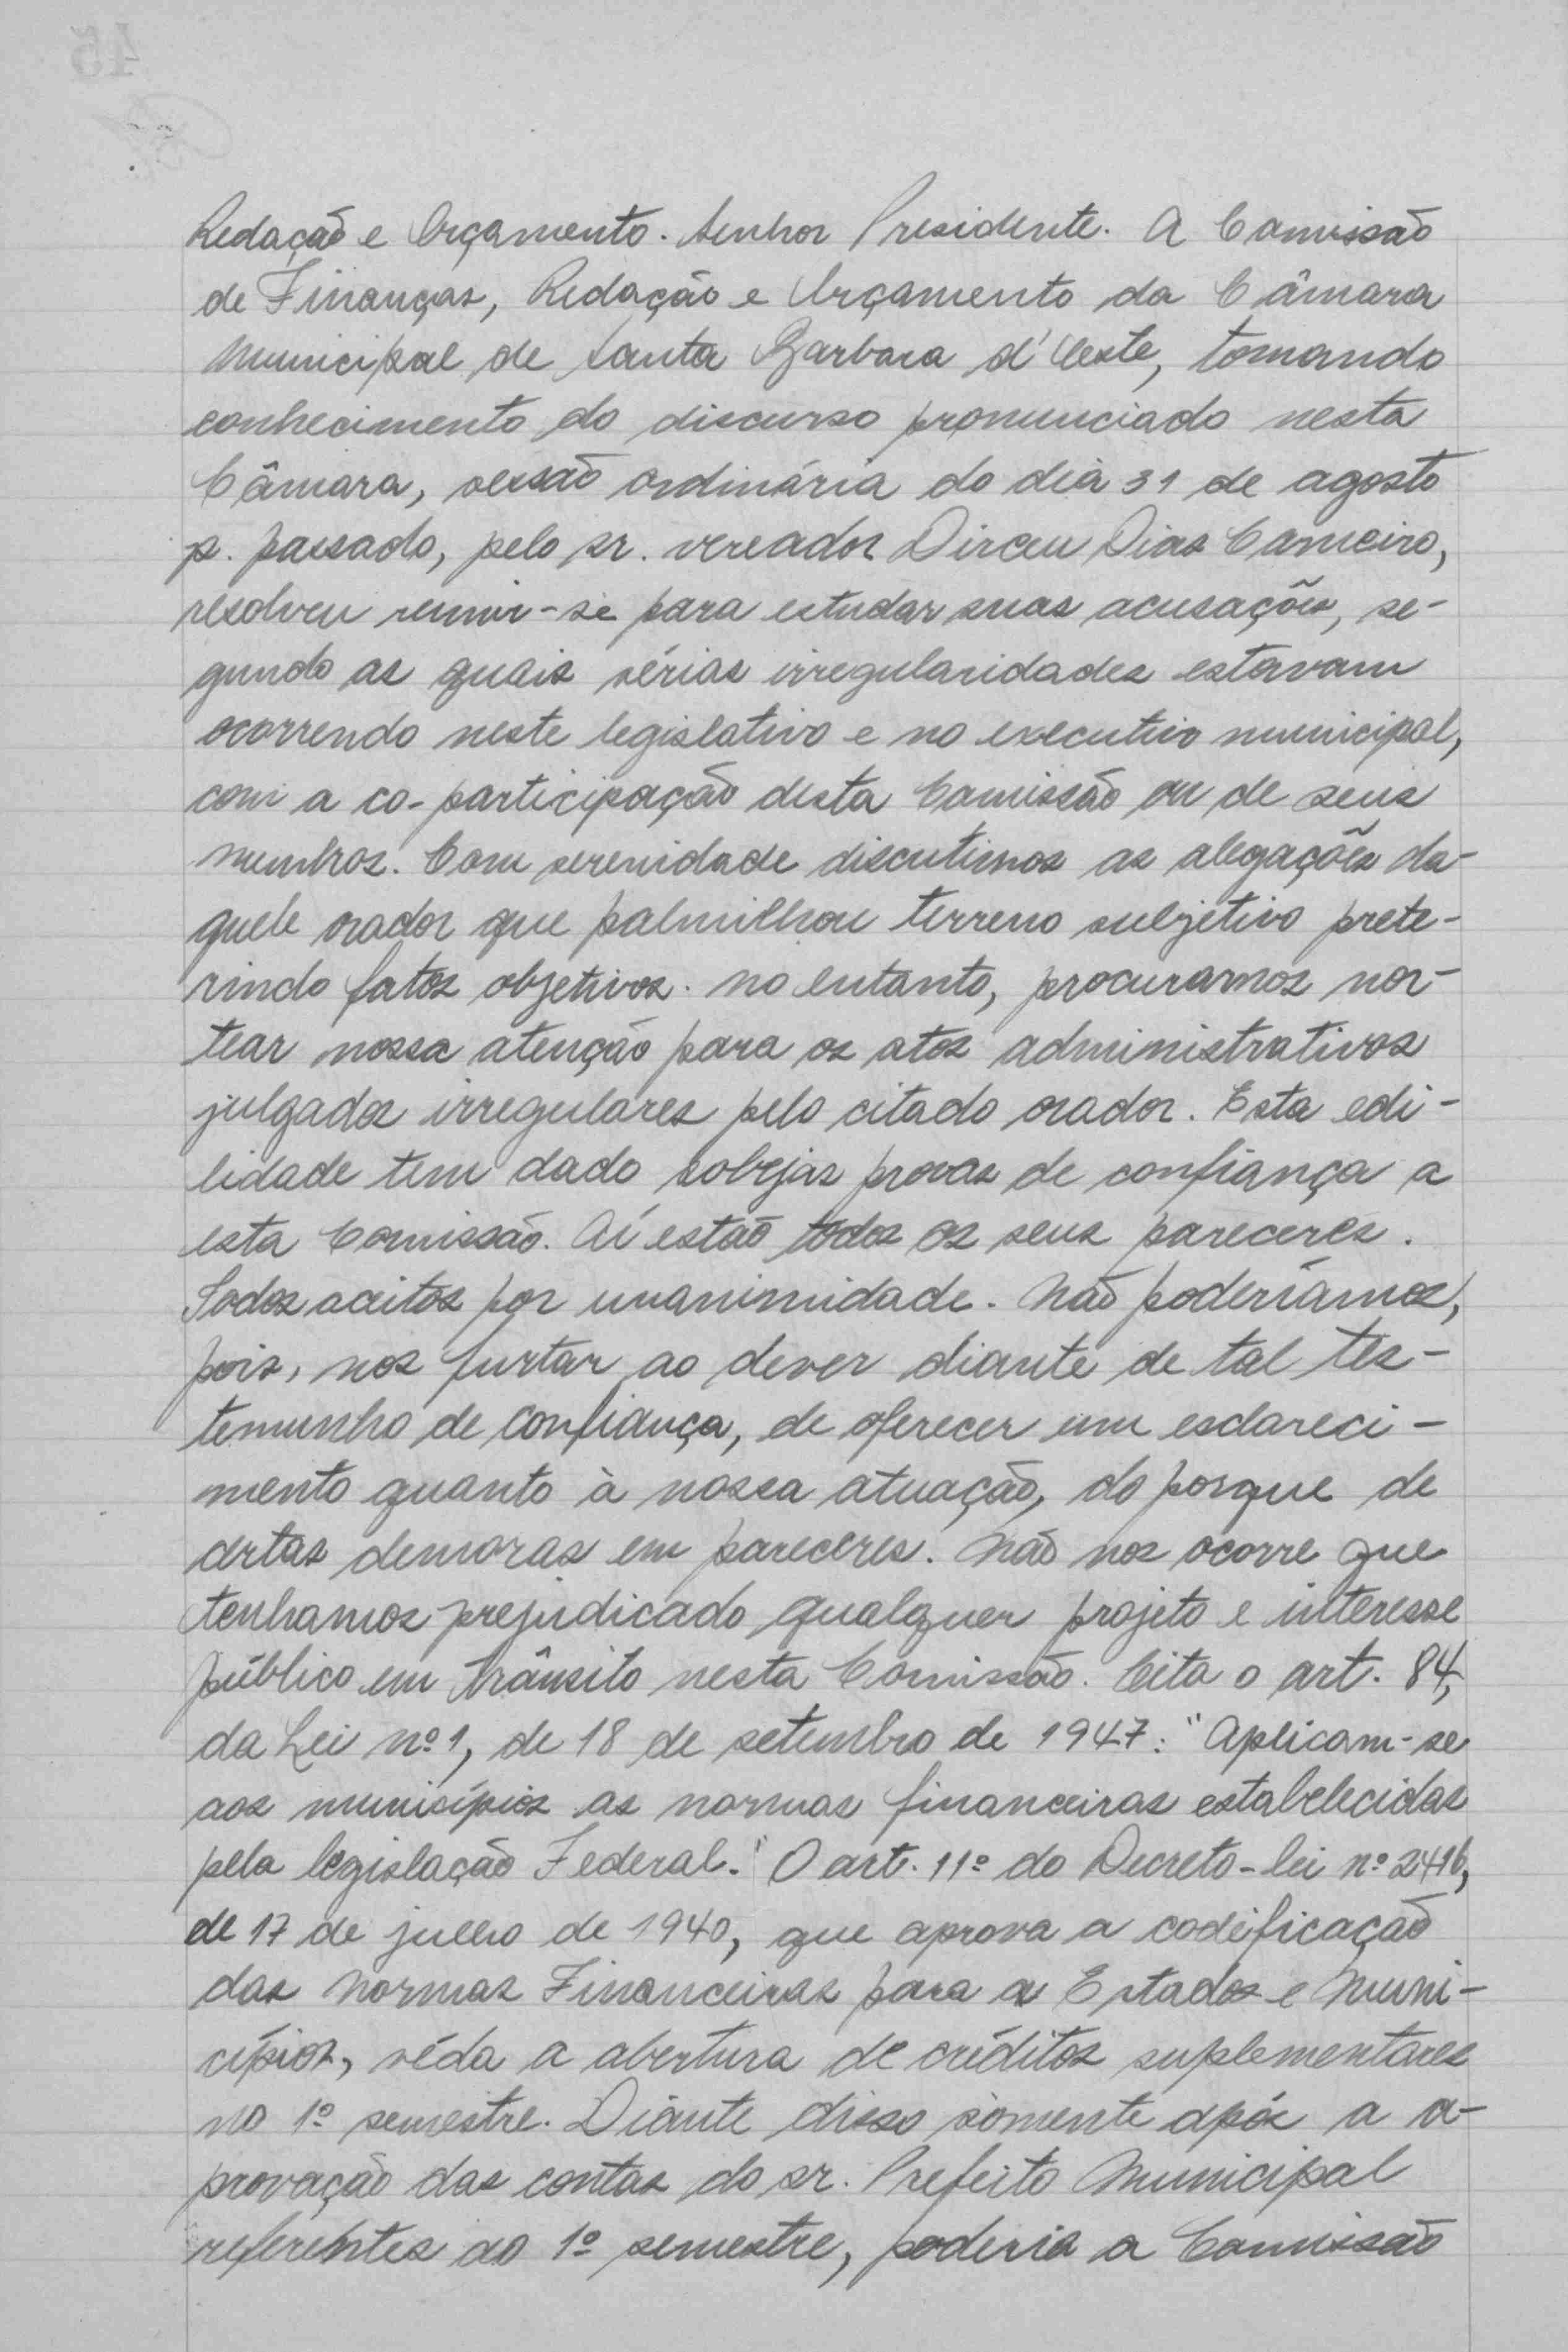 Redação e Orçamento. Senhor Presidente. A Comissão
de Finanças, Redação e Orçamento da Câmara
Municipal de Santa Barbara d'Oeste, tomando
conhecimento do discurso pronunciado nesta
Câmara, sessão ordinária do dia 31 de agosto
p. passado, pelo sr. vereador Dirceu Dias Carneiro,
resolveu reunir-se para estudar suas acusações, se-
gundo as quais sérias irregularidades estavam
ocorrendo neste legislativo e no executivo municipal,
com a co-participação desta Comissão ou de seus
membros. Com serenidade discutimos as alegações da-
quele orador que palmilhou terreno subjetivo prete-
rindo fatos objetivos. No entanto, procuramos nor-
tear nossa atenção para os atos administrativos
julgados irregulares pelo citado orador. Esta edi-
lidade tem dado sobejas provas de confiança a
esta Comissão. Aí estão todos os seus pareceres.
Todos aceitos por unanimidade. Não poderíamos,
pois, nos furtar ao dever diante de tal tes-
temunho de confiança, de oferecer um esclareci-
mento quanto à nossa atuação, do porque de
certas demoras em pareceres. Não nos ocorre que
tenhamos prejudicado qualquer projeto e interesse
público em trânsito nesta Comissão. Cita o art. 84,
da Lei nº 1, de 18 de setembro de 1947: "Aplicam-se
aos municípios as normas financeiras estabelecidas
pela legislação Federal." O art. 11º do Decreto-lei nº 2416,
de 17 de julho de 1940, que aprova a codificação
das Normas Financeiras para os Estados e Muni-
cípios, véda a abertura de créditos suplementares
no 1º semestre. Diante disso sòmente após a a-
provação das contas do sr. Prefeito Municipal
referentes ao 1º semestre, poderia a Comissão